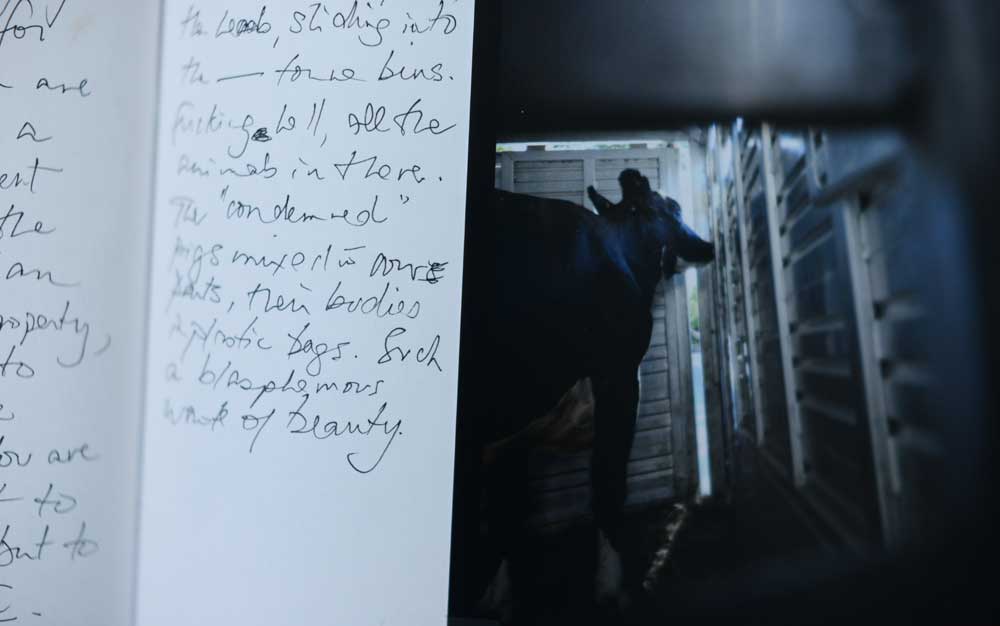 for
are
a
ent
the
an
roperty,
to
ou are
to
but to
the , sliding into
the — bins.
Fucking hell, all the
animals in there.
The "condemned"
pigs mixed in
parts, their bodies
plastic bags. Such
a blasphemous
of beauty.